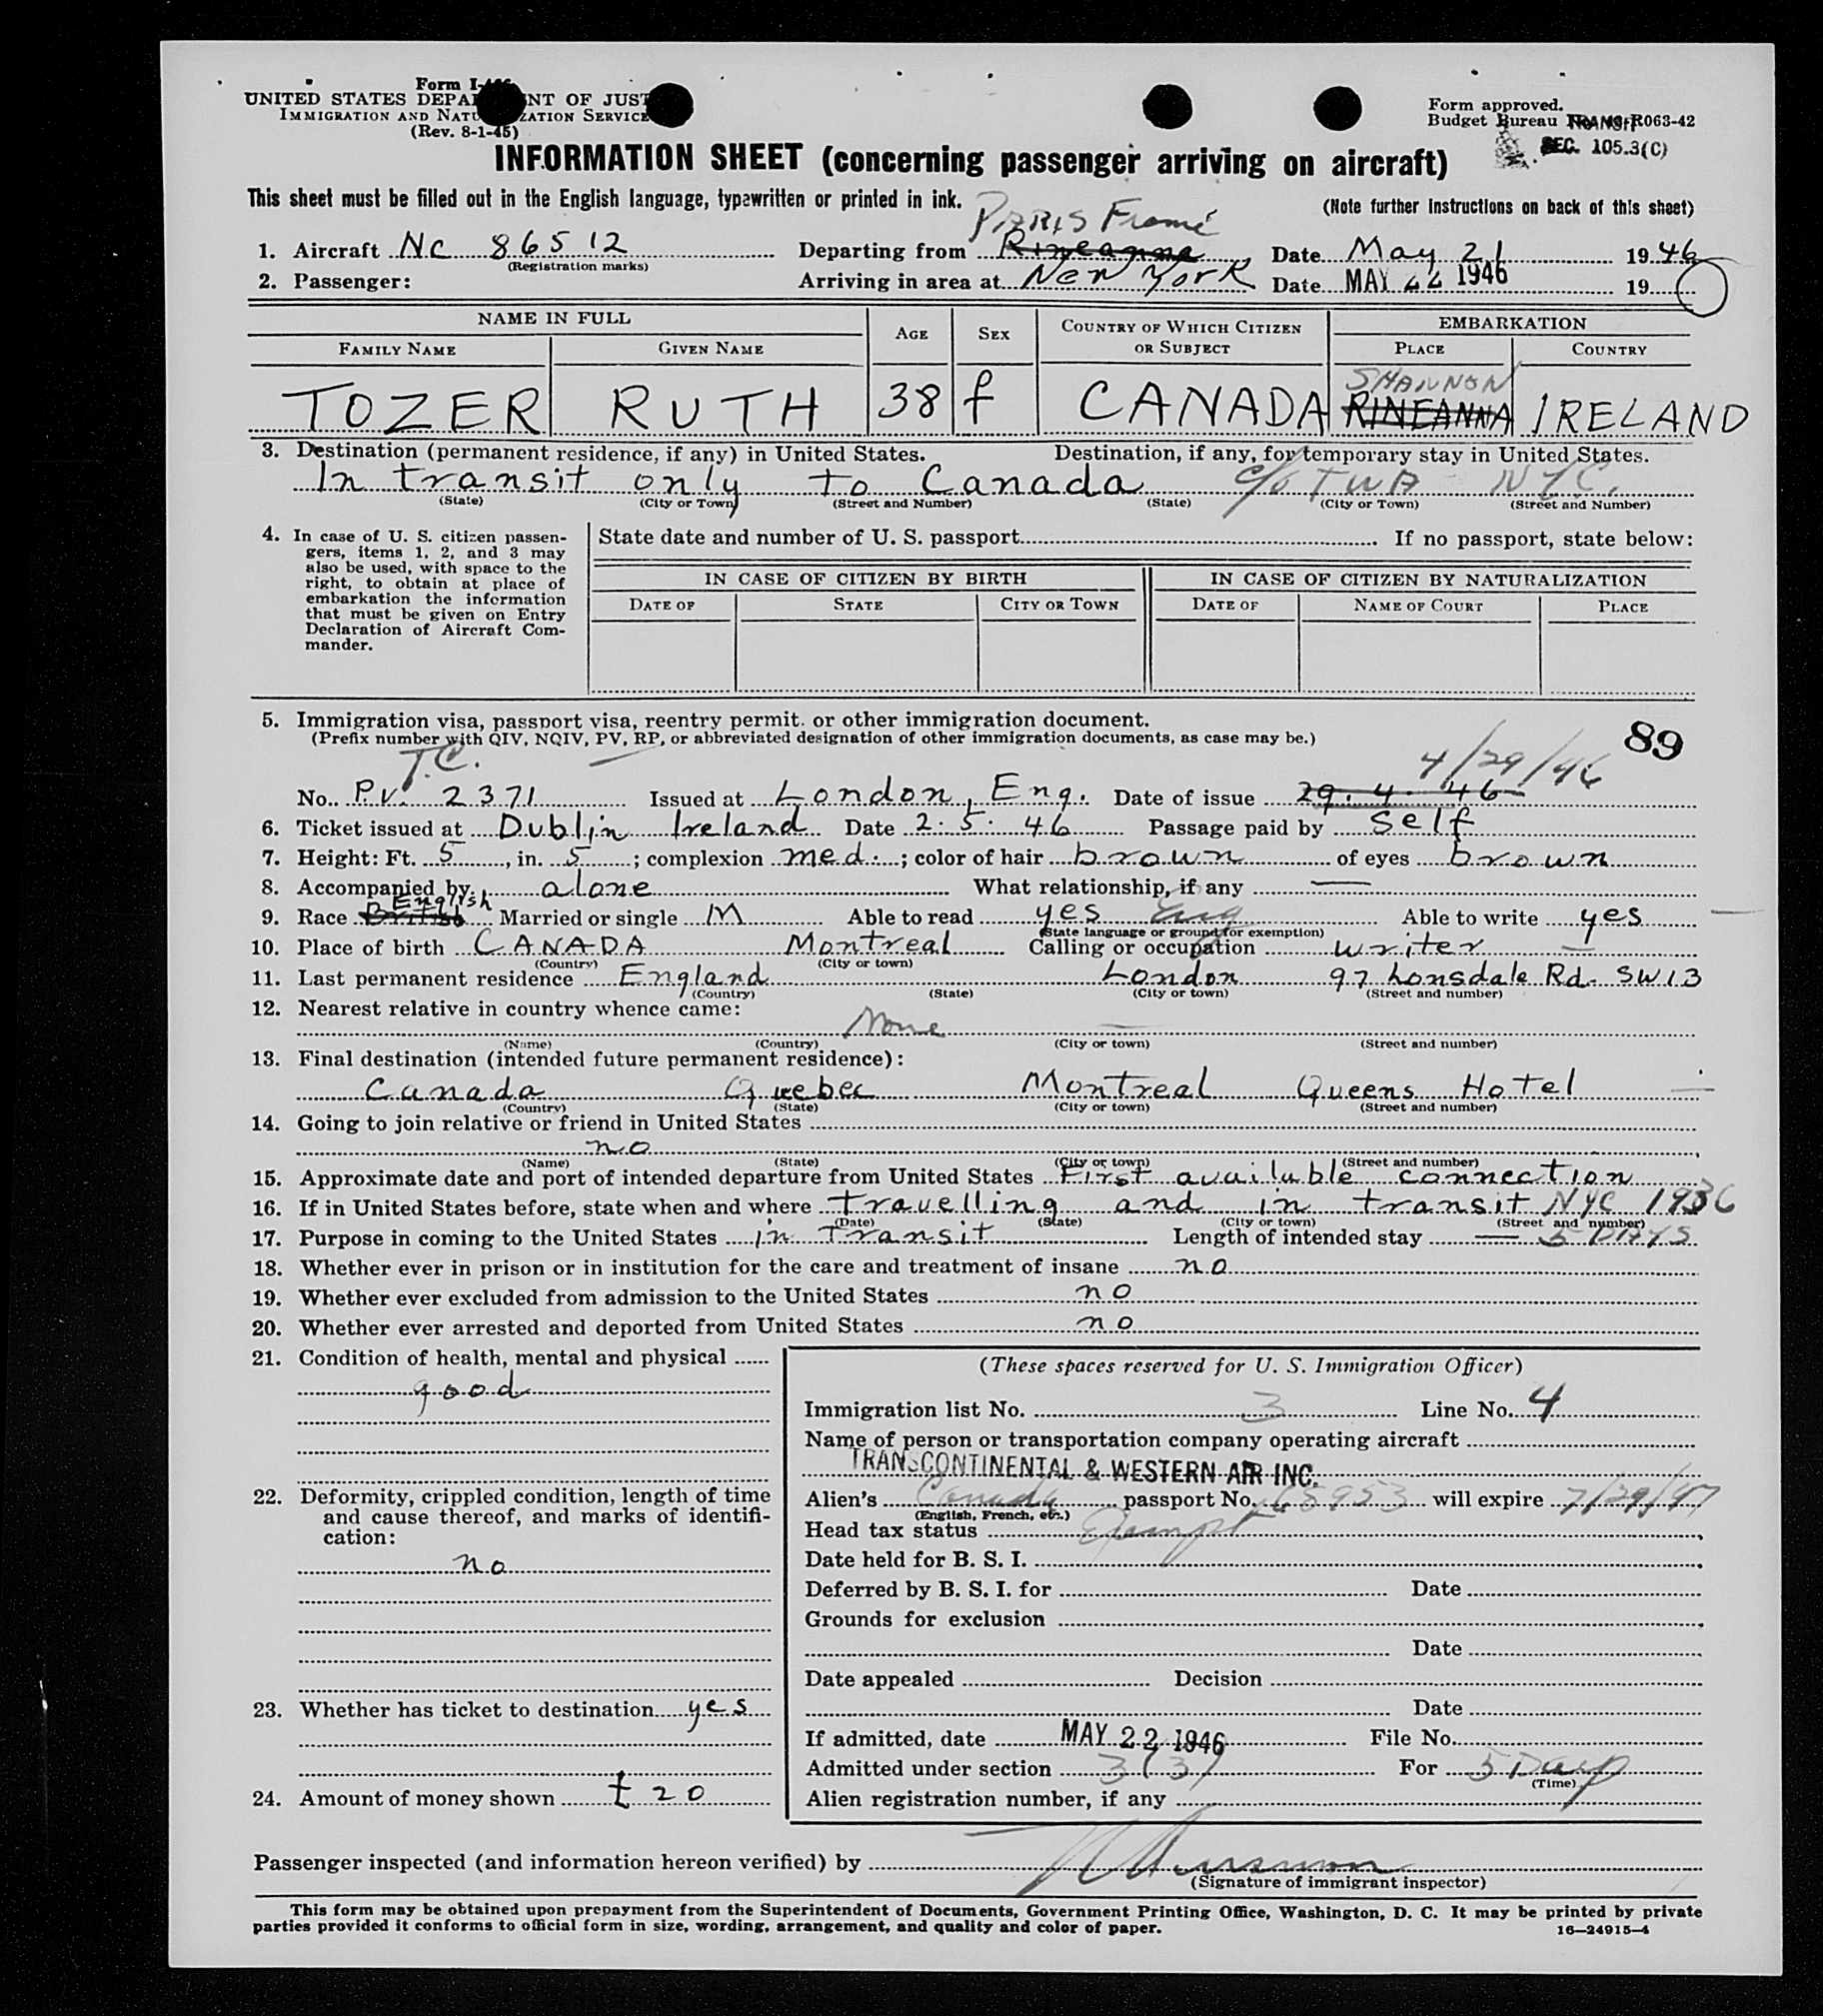 Form I-
UNITED STATES DEPA NT OF JUST
IMMIGRATION AND NATU ZATION SERVICE
(Rev. 8-1-45)
Form approved.
Budget Bureau No. 43-R063-42
TRANSIT
SEC. 105.3(C)
INFORMATION SHEET (concerning passenger arriving on aircraft)
This sheet must be filled out in the English language, typewritten or printed in ink.
(Note further instructions on back of this sheet)
PARIS France
1. Aircraft NC 86512 Departing from Rineanna Date May 21 1946
(Registration marks)
2. Passenger: Arriving in area at New York Date MAY 22 1946 19
NAME IN FULL AGE SEX COUNTRY OF WHICH CITIZEN OR SUBJECT EMBARKATION
FAMILY NAME GIVEN NAME PLACE COUNTRY
SHANNON
TOZER RUTH 38 f CANADA RINEANNA IRELAND
3. Destination (permanent residence, if any) in United States. Destination, if any, for temporary stay in United States.
In transit only to Canada c/o TWA NYC.
(State) (City or Town) (Street and Number) (State) (City or Town) (Street and Number)
4. In case of U. S. citizen passen-
gers, items 1, 2, and 3 may
also be used, with space to the
right, to obtain at place of
embarkation the information
that must be given on Entry
Declaration of Aircraft Com-
mander.
State date and number of U. S. passport If no passport, state below:
IN CASE OF CITIZEN BY BIRTH IN CASE OF CITIZEN BY NATURALIZATION
DATE OF STATE CITY OR TOWN DATE OF NAME OF COURT PLACE
5. Immigration visa, passport visa, reentry permit, or other immigration document.
(Prefix number with QIV, NQIV, PV, RP, or abbreviated designation of other immigration documents, as case may be.)
89
T.C. 4/29/46
No. P.V. 2371 Issued at London, Eng. Date of issue 29. 4. 46
6. Ticket issued at Dublin Ireland Date 2. 5. 46 Passage paid by self
7. Height: Ft. 5, in. 5; complexion med.; color of hair brown of eyes brown
8. Accompanied by alone What relationship, if any —
English
9. Race British Married or single M Able to read yes Eng Able to write yes
(State language or ground for exemption)
10. Place of birth CANADA Montreal Calling or occupation writer
(Country) (City or town)
11. Last permanent residence England London 97 Lonsdale Rd. SW13
(Country) (State) (City or town) (Street and number)
12. Nearest relative in country whence came:
None —
(Name) (Country) (City or town) (Street and number)
13. Final destination (intended future permanent residence):
Canada Quebec Montreal Queens Hotel
(Country) (State) (City or town) (Street and number)
14. Going to join relative or friend in United States
no
(Name) (State) (City or town) (Street and number)
15. Approximate date and port of intended departure from United States First available connection
16. If in United States before, state when and where travelling and in transit NYC 1936
(Date) (State) (City or town) (Street and number)
17. Purpose in coming to the United States in transit Length of intended stay — 5 DAYS
18. Whether ever in prison or in institution for the care and treatment of insane no
19. Whether ever excluded from admission to the United States no
20. Whether ever arrested and deported from United States no
21. Condition of health, mental and physical
good
22. Deformity, crippled condition, length of time
and cause thereof, and marks of identifi-
cation:
no
23. Whether has ticket to destination yes
24. Amount of money shown £ 20
(These spaces reserved for U. S. Immigration Officer)
Immigration list No. 3 Line No. 4
Name of person or transportation company operating aircraft
TRANSCONTINENTAL & WESTERN AIR INC.
Alien's Canada passport No. 65953 will expire 7/29/47
(English, French, etc.)
Head tax status Exempt
Date held for B. S. I.
Deferred by B. S. I. for Date
Grounds for exclusion
Date
Date appealed Decision
Date
If admitted, date MAY 22 1946 File No.
Admitted under section 3(3) For 5 Days
(Time)
Alien registration number, if any
Passenger inspected (and information hereon verified) by
(Signature of immigrant inspector)
This form may be obtained upon prepayment from the Superintendent of Documents, Government Printing Office, Washington, D. C. It may be printed by private
parties provided it conforms to official form in size, wording, arrangement, and quality and color of paper.
16—24915-4